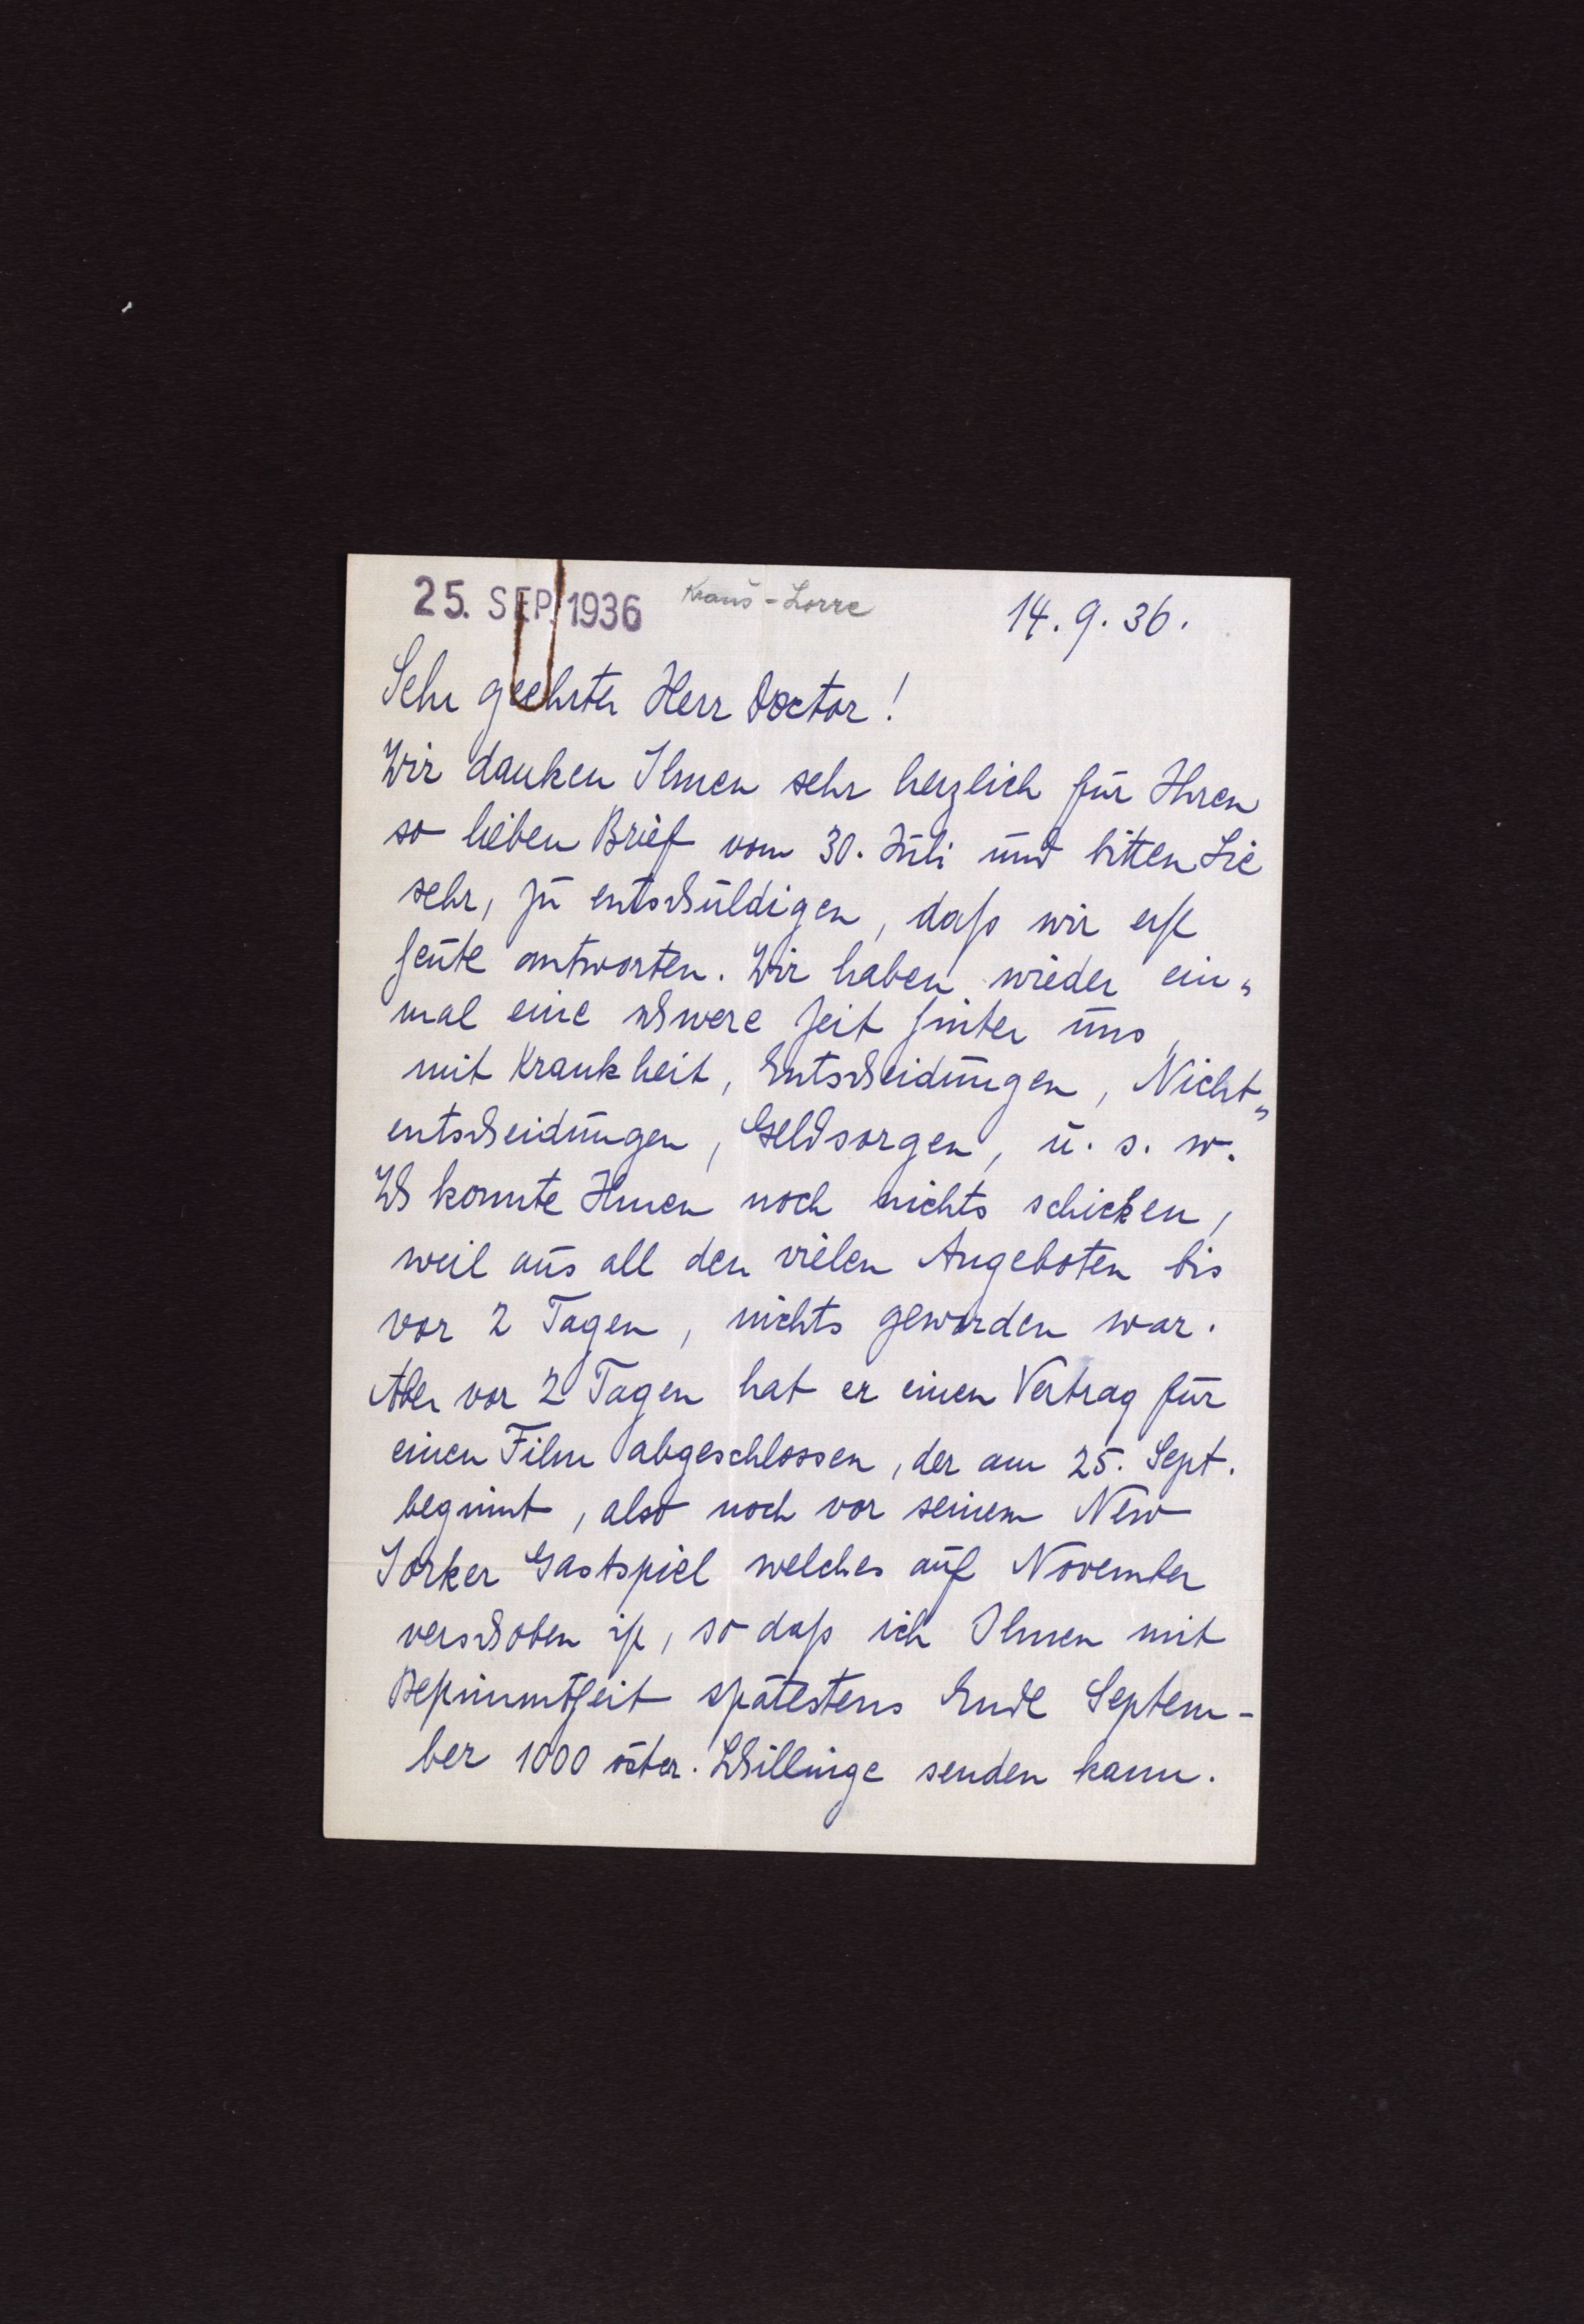 25. SEP. 1936
Kraus-Lorre
14.9.36.
Sehr geehrter Herr Doctor!
Wir danken Ihnen sehr herzlich für Ihren
so lieben Brief vom 30. Juli und bitten Sie
sehr, zu entschuldigen, daß wir erst
heute antworten. Wir haben wieder ein-
mal eine schwere Zeit hinter uns,
mit Krankheit, Entscheidungen, Nicht-
entscheidungen, Geldsorgen, u. s. w.
Ich konnte Ihnen noch nichts schicken,
weil aus all den vielen Angeboten bis
vor 2 Tagen, nichts geworden war.
Aber vor 2 Tagen hat er einen Vertrag für
einen Film abgeschlossen, der am 25. Sept.
beginnt, also noch vor seinem New
Yorker Gastspiel welches auf November
verschoben ist, so daß ich Ihnen mit
Bestimmtheit spätestens Ende Septem-
ber 1000 öster. Schillinge senden kann.